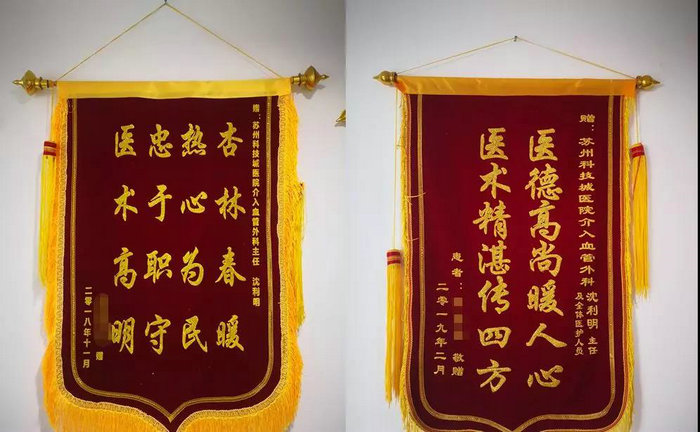 赠：苏州科技城医院介入血管外科主任 沈利明
杏林春暖
热心为民
忠于职守
医术高明
赠
二零一八年十一月
赠：苏州科技城医院介入血管外科 沈利明 主任
及全体医护人员
医德高尚暖人心
医术精湛传四方
患者： 敬赠
二零一九年二月